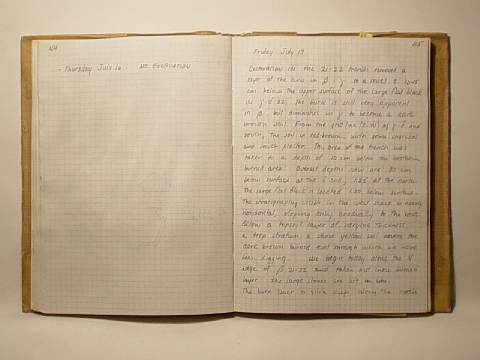 164
- Thursday July 16 No Excavation
165
Friday July 17
Excavation in the 21-22 trench removed a
layer of the burn in β, γ to a level 5 10-15
cm. below the upper surface of the large flat block
in γ-δ 22. The burn is still very apparent
in β, but diminishes in γ to become a dark
brown soil. From the grid line (E-W) of γ-δ and
south, the soil is red-brown, with some charcoal
and much plaster. This area of the trench was
taken to a depth of 10 cm below the northern
burned area. Overall depths now are: 80 cm
below surface at the S end, 1.25 at the north.
The large flat block is located 1.20 below surface.
The stratigraphy visible in the west scarp is nearly
horizontal, sloping only gradually to the
Below a topsoil layer of varying thickness
a deep stratum of dense yellow soil covers the
dark brown burned level through which we have
been digging. We begin today along the N
edge of β 21-22 and taken out more burned
layer. The large stones here sit on
The burn layer is quite deep along the north